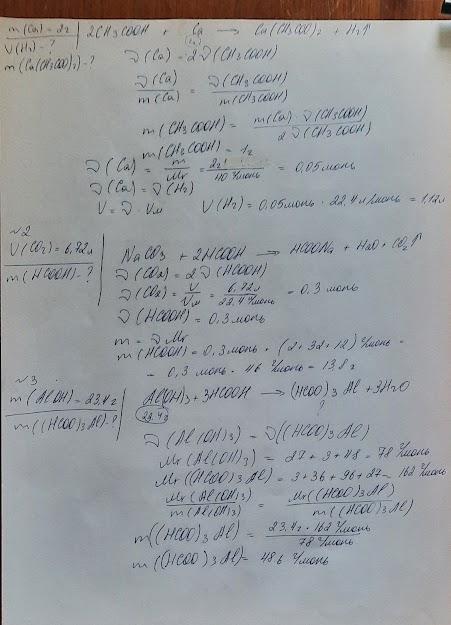 m(Ca) = 2г | 2CH3COOH + Ca → Ca(CH3COO)2 + H2↑
V(H2) - ?
m(Ca(CH3COO)2) - ?
ν(Ca) = 2ν(CH3COOH)
ν(Ca) / m(Ca) = ν(CH3COOH) / m(CH3COOH)
m(CH3COOH) = m(Ca) · ν(CH3COOH) / 2ν(CH3COOH)
m(CH3COOH) = 1г
ν(Ca) = m / Mr = 2г / 40 г/моль = 0,05моль
ν(Ca) = ν(H2)
V = ν · Vм V(H2) = 0,05моль · 22,4 л/моль = 1,12л
~2
V(CO2) = 6,72л
m(HCOOH) - ?
NaCO3 + 2HCOOH → HCOONa + H2O + CO2↑
ν(CO2) = 2ν(HCOOH)
ν(CO2) = V / Vм = 6,72л / 22,4 г/моль = 0,3 моль
ν(HCOOH) = 0,3моль
m = ν Mr
m(HCOOH) = 0,3моль · (2 + 32 + 12) г/моль =
= 0,3 моль · 46 г/моль = 13,8г
~3
m(AlOH) = 23,4г
m((HCOO)3Al) - ?
Al(OH)3 + 3HCOOH → (HCOO)3Al + 3H2O
23,4г ?
ν(Al(OH)3) = ν((HCOO)3Al)
Mr(Al(OH)3) = 27 + 3 + 48 = 78 г/моль
Mr((HCOO)3Al) = 3 + 36 + 96 + 27 = 162 г/моль
Mr(Al(OH)3) / m(Al(OH)3) = Mr((HCOO)3Al) / m((HCOO)3Al)
m((HCOO)3Al) = 23,4г · 162 г/моль / 78 г/моль
m((HCOO)3Al) = 48,6 г/моль